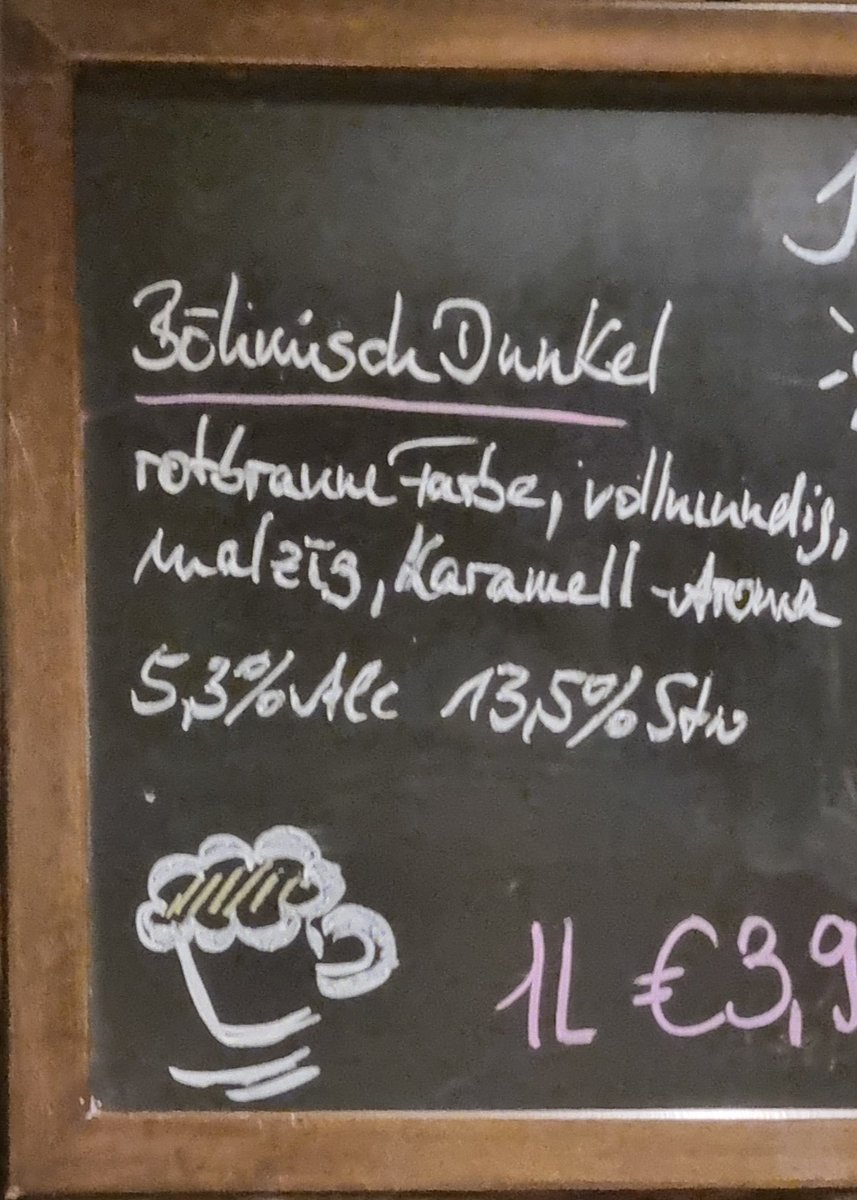 Böhmisch Dunkel
rotbraune Farbe, vollmundig,
malzig, Karamell-Aroma
5,3% Alc 13,5% Stw
1L € 3,9